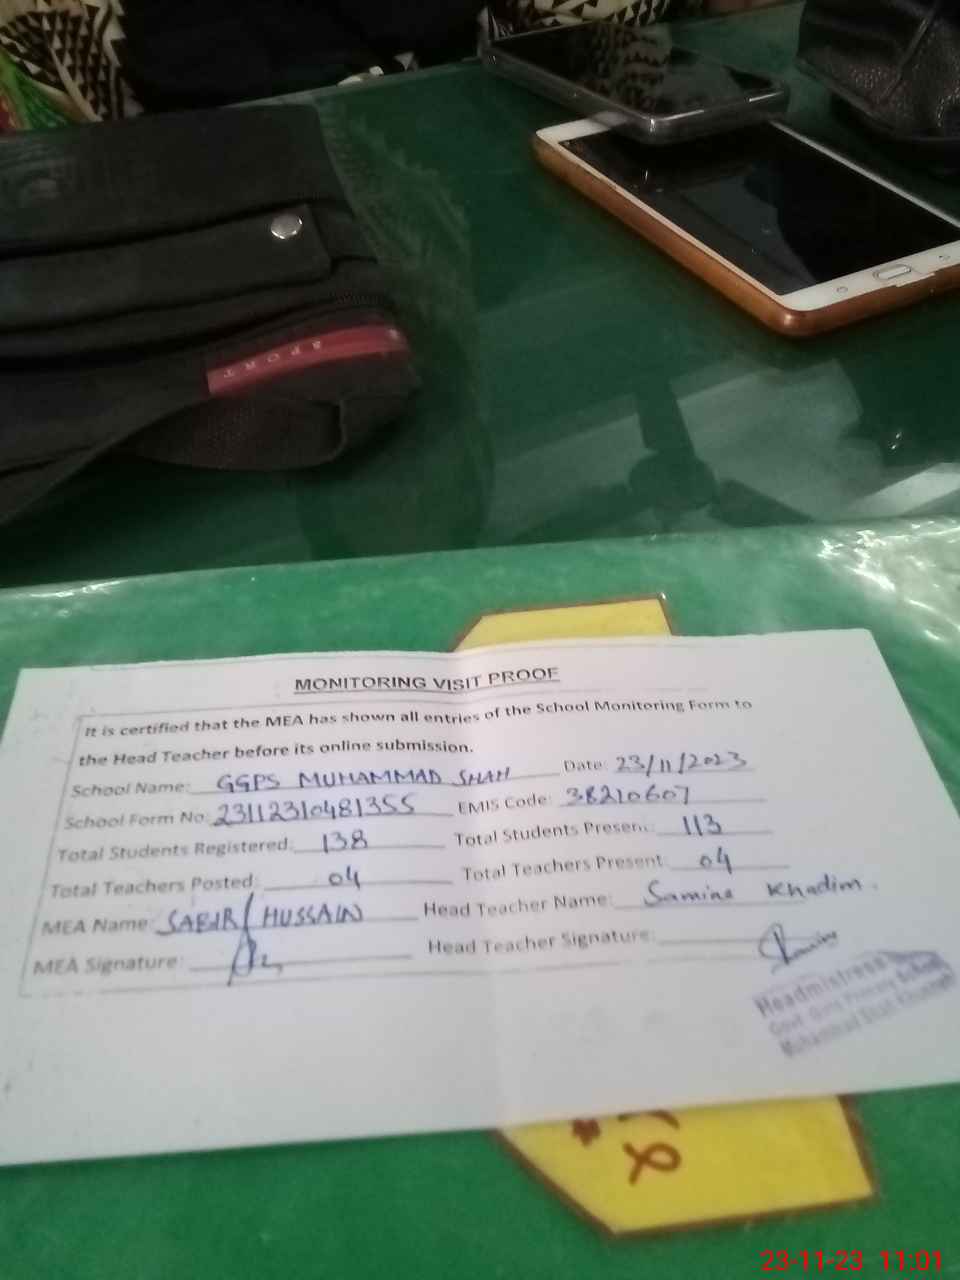 SPORT
MONITORING VISIT PROOF
It is certified that the MEA has shown all entries of the School Monitoring Form to
the Head Teacher before its online submission.
School Name: GGPS MUHAMMAD SHAH Date: 23/11/2023
School Form No: 23112310481355 EMIS Code: 38210607
Total Students Registered: 138 Total Students Present: 113
Total Teachers Posted: 04 Total Teachers Present: 04
MEA Name: SABIR HUSSAIN Head Teacher Name: Samina Khadim.
MEA Signature: Head Teacher Signature:
Headmistress
Govt. Girls Primary School
Muhammad Shah
23-11-23 11:01